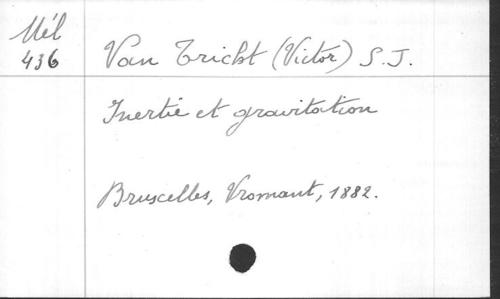 Mél
436
Van Tricht (Victor) S.J.
Inertie et gravitation
Bruxelles, Vromant, 1882.